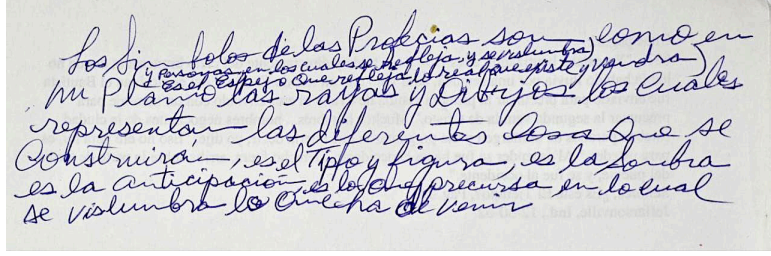 Los Simbolos de las Profecias son, como en
(y Personas en los cuales se refleja, y se vislumbra)
Es el Espejo Que refleja lo real que existe, y vendra)
un Plano las rayas y Dibujos los cuales
representan las diferentes Cosa Que se
Construirán, es el Tipo y figura, es la Sombra
es la anticipación, es lo que precursa en lo cual
se vislumbra lo Que ha de venir